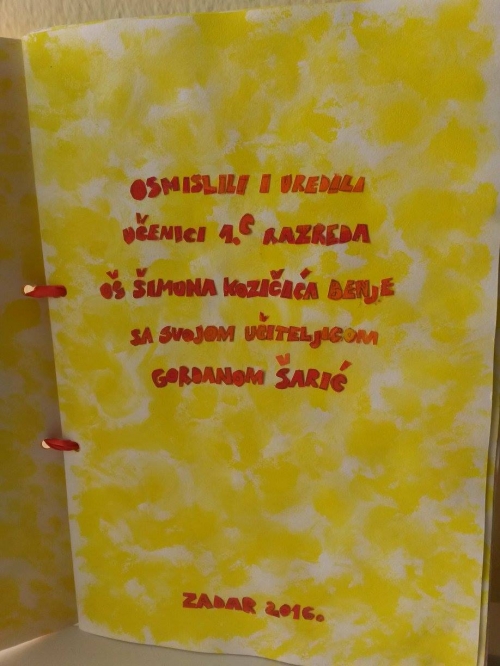 OSMISLILI I UREDILI
UČENICI 1.C RAZREDA
OŠ ŠIMUNA KOŽIČIĆA BENJE
SA SVOJOM UČITELJICOM
GORDANOM ŠARIĆ
ZADAR 2016.